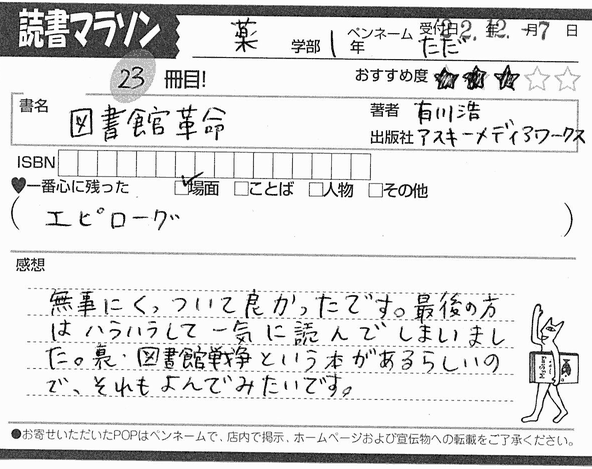 読書マラソン
薬 学部 1 年 ペンネーム ただ 受付日 22.12.-7 日
23 冊目! おすすめ度 ★★★☆☆
書名 図書館革命
著者 有川浩
出版社 アスキーメディアワークス
ISBN
♥一番心に残った ☑場面 □ことば □人物 □その他
( エピローグ )
感想
無事にくっついて良かったです。最後の方
はハラハラして一気に読んでしまいまし
た。裏・図書館戦争という本があるらしいの
で、それもよんでみたいです。
●お寄せいただいたPOPはペンネームで、店内で掲示、ホームページおよび宣伝物への転載をご了承ください。